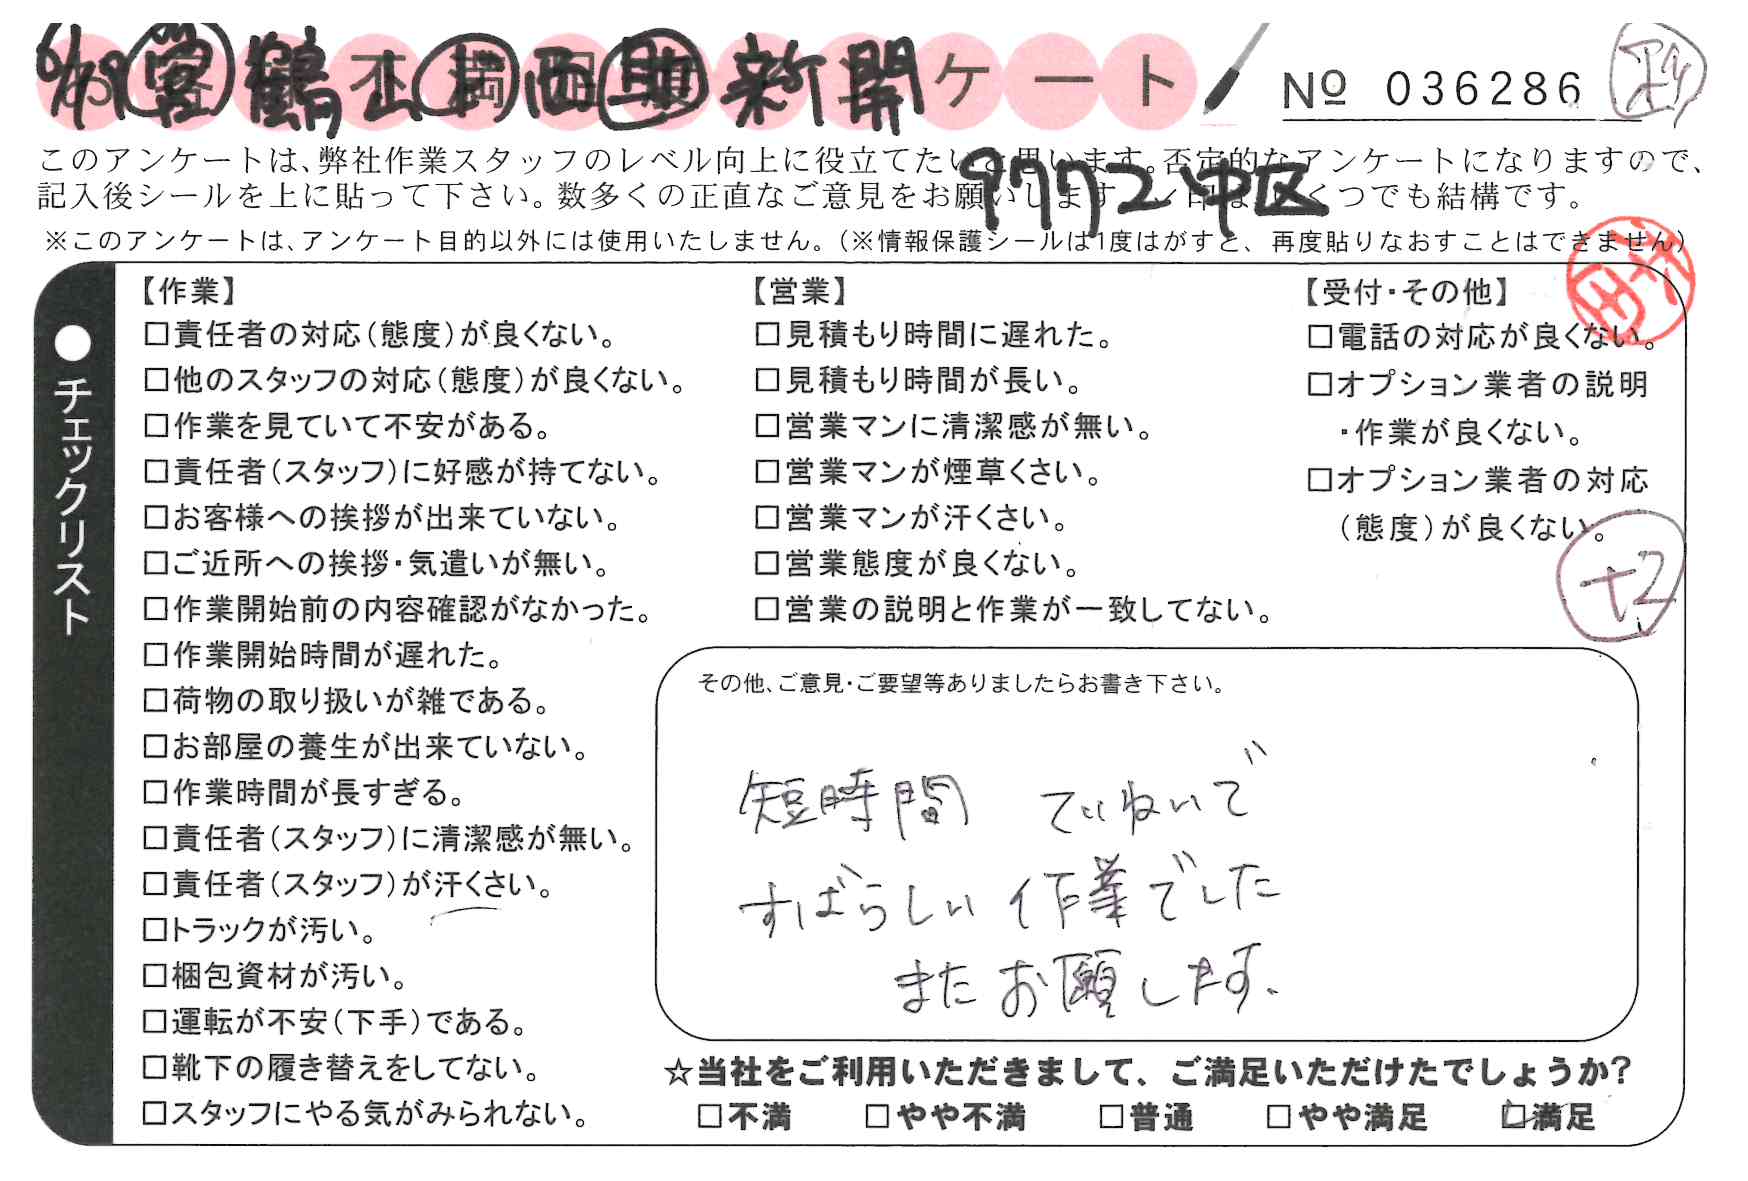 ケート
№ 036286
このアンケートは、弊社作業スタッフのレベル向上に役立てたいと思います。否定的なアンケートになりますので、
記入後シールを上に貼って下さい。数多くの正直なご意見をお願いします。✓印はいくつでも結構です。
9772 中区
※このアンケートは、アンケート目的以外には使用いたしません。(※情報保護シールは1度はがすと、再度貼りなおすことはできません)
●チェックリスト
【作業】
□責任者の対応(態度)が良くない。
□他のスタッフの対応(態度)が良くない。
□作業を見ていて不安がある。
□責任者(スタッフ)に好感が持てない。
□お客様への挨拶が出来ていない。
□ご近所への挨拶・気遣いが無い。
□作業開始前の内容確認がなかった。
□作業開始時間が遅れた。
□荷物の取り扱いが雑である。
□お部屋の養生が出来ていない。
□作業時間が長すぎる。
□責任者(スタッフ)に清潔感が無い。
□責任者(スタッフ)が汗くさい。
□トラックが汚い。
□梱包資材が汚い。
□運転が不安(下手)である。
□靴下の履き替えをしてない。
□スタッフにやる気がみられない。
【営業】
□見積もり時間に遅れた。
□見積もり時間が長い。
□営業マンに清潔感が無い。
□営業マンが煙草くさい。
□営業マンが汗くさい。
□営業態度が良くない。
□営業の説明と作業が一致してない。
【受付・その他】
□電話の対応が良くない。
□オプション業者の説明
・作業が良くない。
□オプション業者の対応
(態度)が良くない。
+2
その他、ご意見・ご要望等ありましたらお書き下さい。
短時間 ていねいで
すばらしい作業でした
またお願します。
☆当社をご利用いただきまして、ご満足いただけたでしょうか?
□不満 □やや不満 □普通 □やや満足 ☑満足